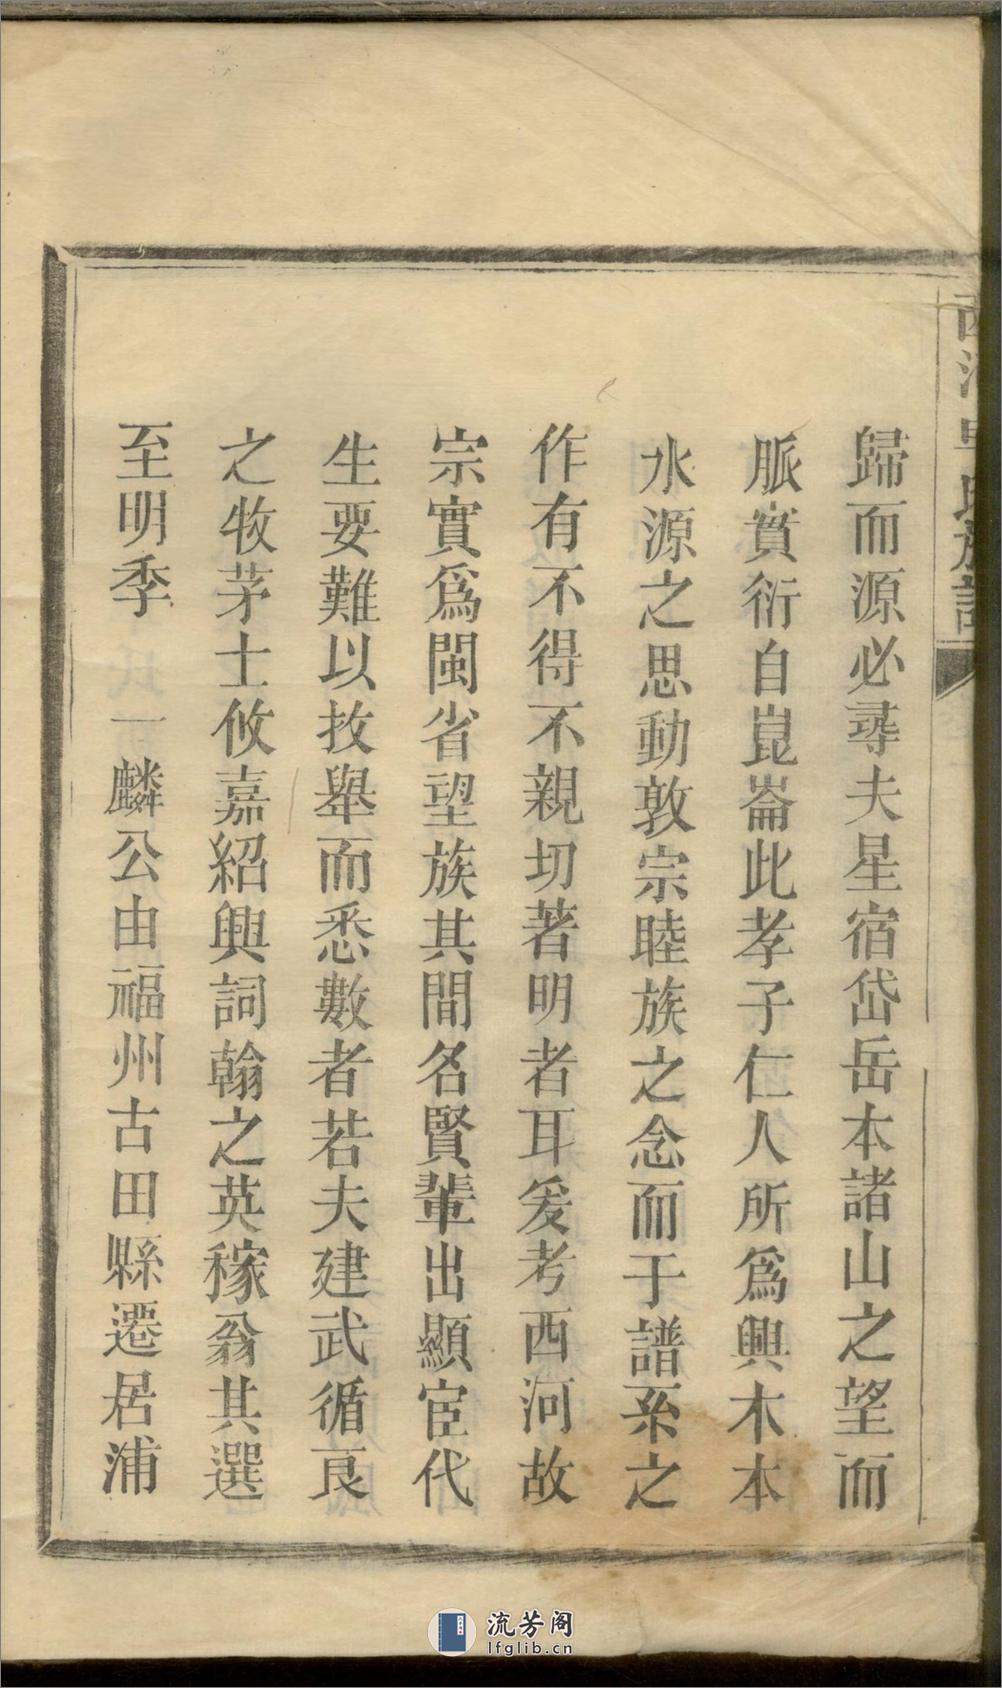 歸而源必尋夫星宿岱岳本諸山之望而
脈實衍自崑崙此孝子仁人所爲興木本
水源之思動敦宗睦族之念而于譜系之
作有不得不親切著明者耳爰考西河故
宗實爲閩省望族其間名賢輩出顯宦代
生要難以枚舉而悉數者若夫建武循良
之牧茅士攸嘉紹興詞翰之英稼翁其選
至明季 一麟公由福州古田縣遷居浦
流芳阁
lfglib.cn